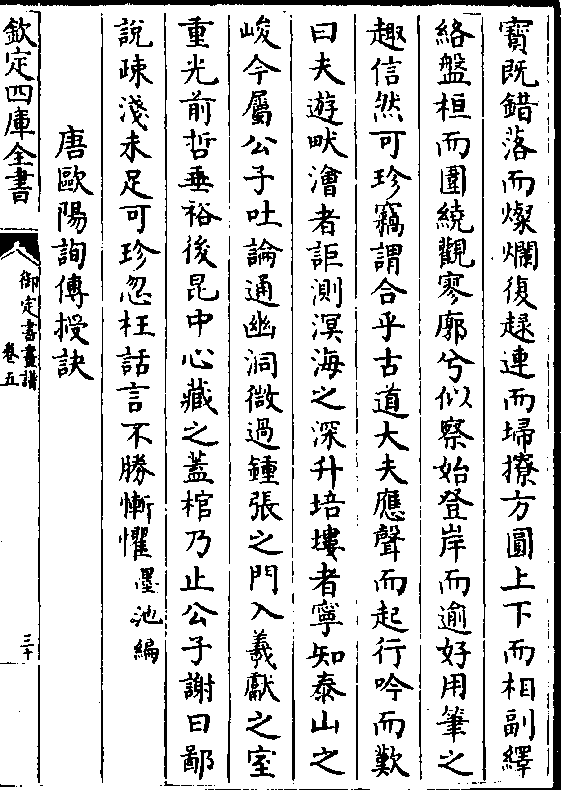 寶既錯落而燦爛復趢連而埽撩方圓上下而相副繹
絡盤桓而圍繞觀寥廓兮似察始登岸而逾好用筆之
趣信然可珍竊謂合乎古道大夫應聲而起行吟而歎
曰夫遊畎澮者詎測溟海之深升培塿者寧知泰山之
峻今屬公子吐論通幽洞微過鍾張之門入羲獻之室
重光前哲垂裕後昆中心藏之蓋棺乃止公子謝曰鄙
說疎淺未足可珍忽枉話言不勝慚懼墨池編
唐歐陽詢傳授訣
欽定四庫全書
御定書畫譜
卷五
三十